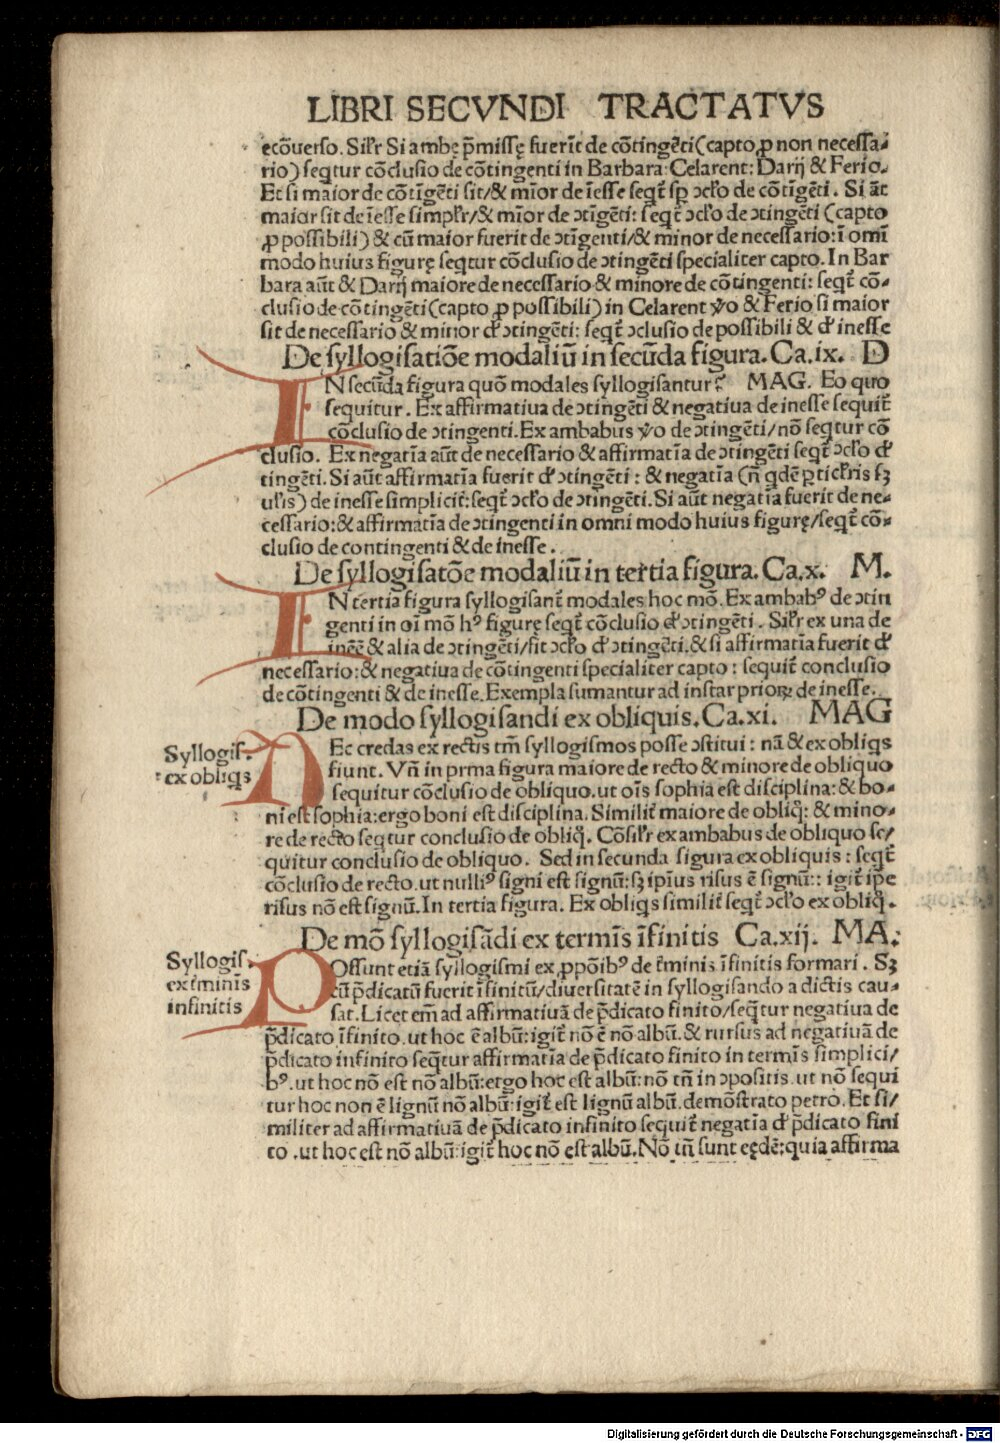 LIBRI SECVNDI TRACTATVS
ecõuerso. Silr̃ Si ambę p̃missę fuerĩt de cõtingẽti (capto ꝓ non necessa⸗
rio) seqtur cõclusio de cõtingenti in Barbara: Celarent: Darij & Ferio.
Et si maior de cõtĩgẽti sit/& mĩor de ĩesse seqt̃ sꝑ ↄclo̷ de cõtĩgẽti. Si aũt
maior sit de ĩesse simplr̃/& mĩor de ↄtĩgẽti: seqt̃ ↄclo̷ de ↄtingẽti (capto
ꝓ possibili) & cũ maior fuerit de ↄtĩgenti/& minor de necessario: ĩ omĩ
modo huius figurę seqtur cõclusio de ↄtingẽti specialiter capto. In Bar
bara aũt & Darij maiore de necessario & minore de cõtingenti: seqt̃ cõ⸗
clusio de cõtingẽti (capto ꝓ possibili) in Celarent ꝟo & Ferio si maior
sit de necessario & minor đ ↄtingẽti: seqt̃ ↄclusio de possibili & đ inesse
De syllogisatiõe modaliũ in secũda figura. Ca.ix. D
IN secũda figura quõ modales syllogisantur? MAG. Eo quo
sequitur. Ex affirmatiua de ↄtingẽti & negatiua de inesse sequit̃
cõclusio de ↄtingenti. Ex ambabus ꝟo de ↄtingẽti/nõ seqtur cõ
clusio. Ex negatĩa aũt de necessario & affirmatĩa de ↄtingẽti seqt̃ ↄclo̷ đ
tingẽti. Si aũt affirmatĩa fuerit đ ↄtingẽti: & negatĩa (ñ qdẽ ꝑticlr̃is sꝫ
ul̃is) de inesse simplicit̃: seqt̃ ↄclo̷ de ↄtingẽti. Si aũt negatĩa fuerit de ne⸗
cessario: & affirmatĩa de ↄtingenti in omni modo huius figurę/seqt̃ cõ⸗
clusio de contingenti & de inesse.
De syllogisatõe modaliũ in tertia figura. Ca.x. M.
IN tertia figura syllogisant̃ modales hoc mõ. Ex ambabꝰ de ↄtin
genti in oĩ mõ hꝰ figurę seqt̃ cõclusio đ ↄtingẽti. Silr̃ ex una de
inẽẽ & alia de ↄtingẽti/fit ↄclo̷ đ ↄtingẽti. & si affirmatĩa fuerit đ
necessario: & negatiua de cõtingenti specialiter capto: sequit̃ conclusio
de cõtingenti & de inesse. Exempla sumantur ad instar prioꝝ de inesse.
De modo syllogisandi ex obliquis. Ca.xi. MAG
Syllogis.
ex obliqs
NEc credas ex rectis tm̃ syllogismos posse ↄstitui: nã & ex obliqs
fiunt. Vñ in prma figura maiore de recto & minore de obliquo
sequitur cõclusio de obliquo. ut oĩs sophia est disciplina: & bo⸗
ni est sophia: ergo boni est disciplina. Similit̃ maiore de obliq̃: & mino⸗
re de recto seqtur conclusio de obliq̃. Cõsilr̃ ex ambabus de obliquo se/
quitur conclusio de obliquo. Sed in secunda figura ex obliquis: seqt̃
cõclusio de recto. ut nulliꝰ signi est signũ: sꝫ ip̃ius risus ẽ signũ:: igit̃ ip̃e
risus nõ est signũ. In tertia figura. Ex obliqs similit̃ seqt̃ ↄclo̷ ex obliq̃.
De mõ syllogisãdi ex termĩs ĩfinitis Ca.xij. MA:
Syllogis.
ex t̃minĩs
infinitis
POssunt etiã syllogismi ex ꝓpõibꝰ de t̃minis ĩfinitis formari. Sꝫ
cũ p̃dicatũ fuerit ĩfinitũ/diuersitatẽ in syllogisando a dictis cau⸗
sat. Licet em̃ ad affirmatiuã de p̃dicato finito/seq̃tur negatiua de
p̃dicato ĩfinito. ut hoc ẽ albũ: igit̃ nõ ẽ nõ albũ. & rursus ad negatiuã de
p̃dicato infinito seq̃tur affirmatĩa de p̃dicato finito in termĩs simplici/
bꝰ. ut hoc nõ est nõ albũ: ergo hoc est albũ: nõ tñ in ↄpositis. ut nõ sequi
tur hoc non ẽ lignũ nõ albũ: igit̃ est lignũ albũ. demõstrato petro. Et si/
militer ad affirmatiuã de p̃dicato infinito sequit̃ negatĩa đ p̃dicato fini
to. ut hoc est nõ albũ: igit̃ hoc nõ est albũ. Nõ tñ sunt eędẽ: quia affirma
Digitalisierung gefördert durch die Deutsche Forschungsgemeinschaft - DFG